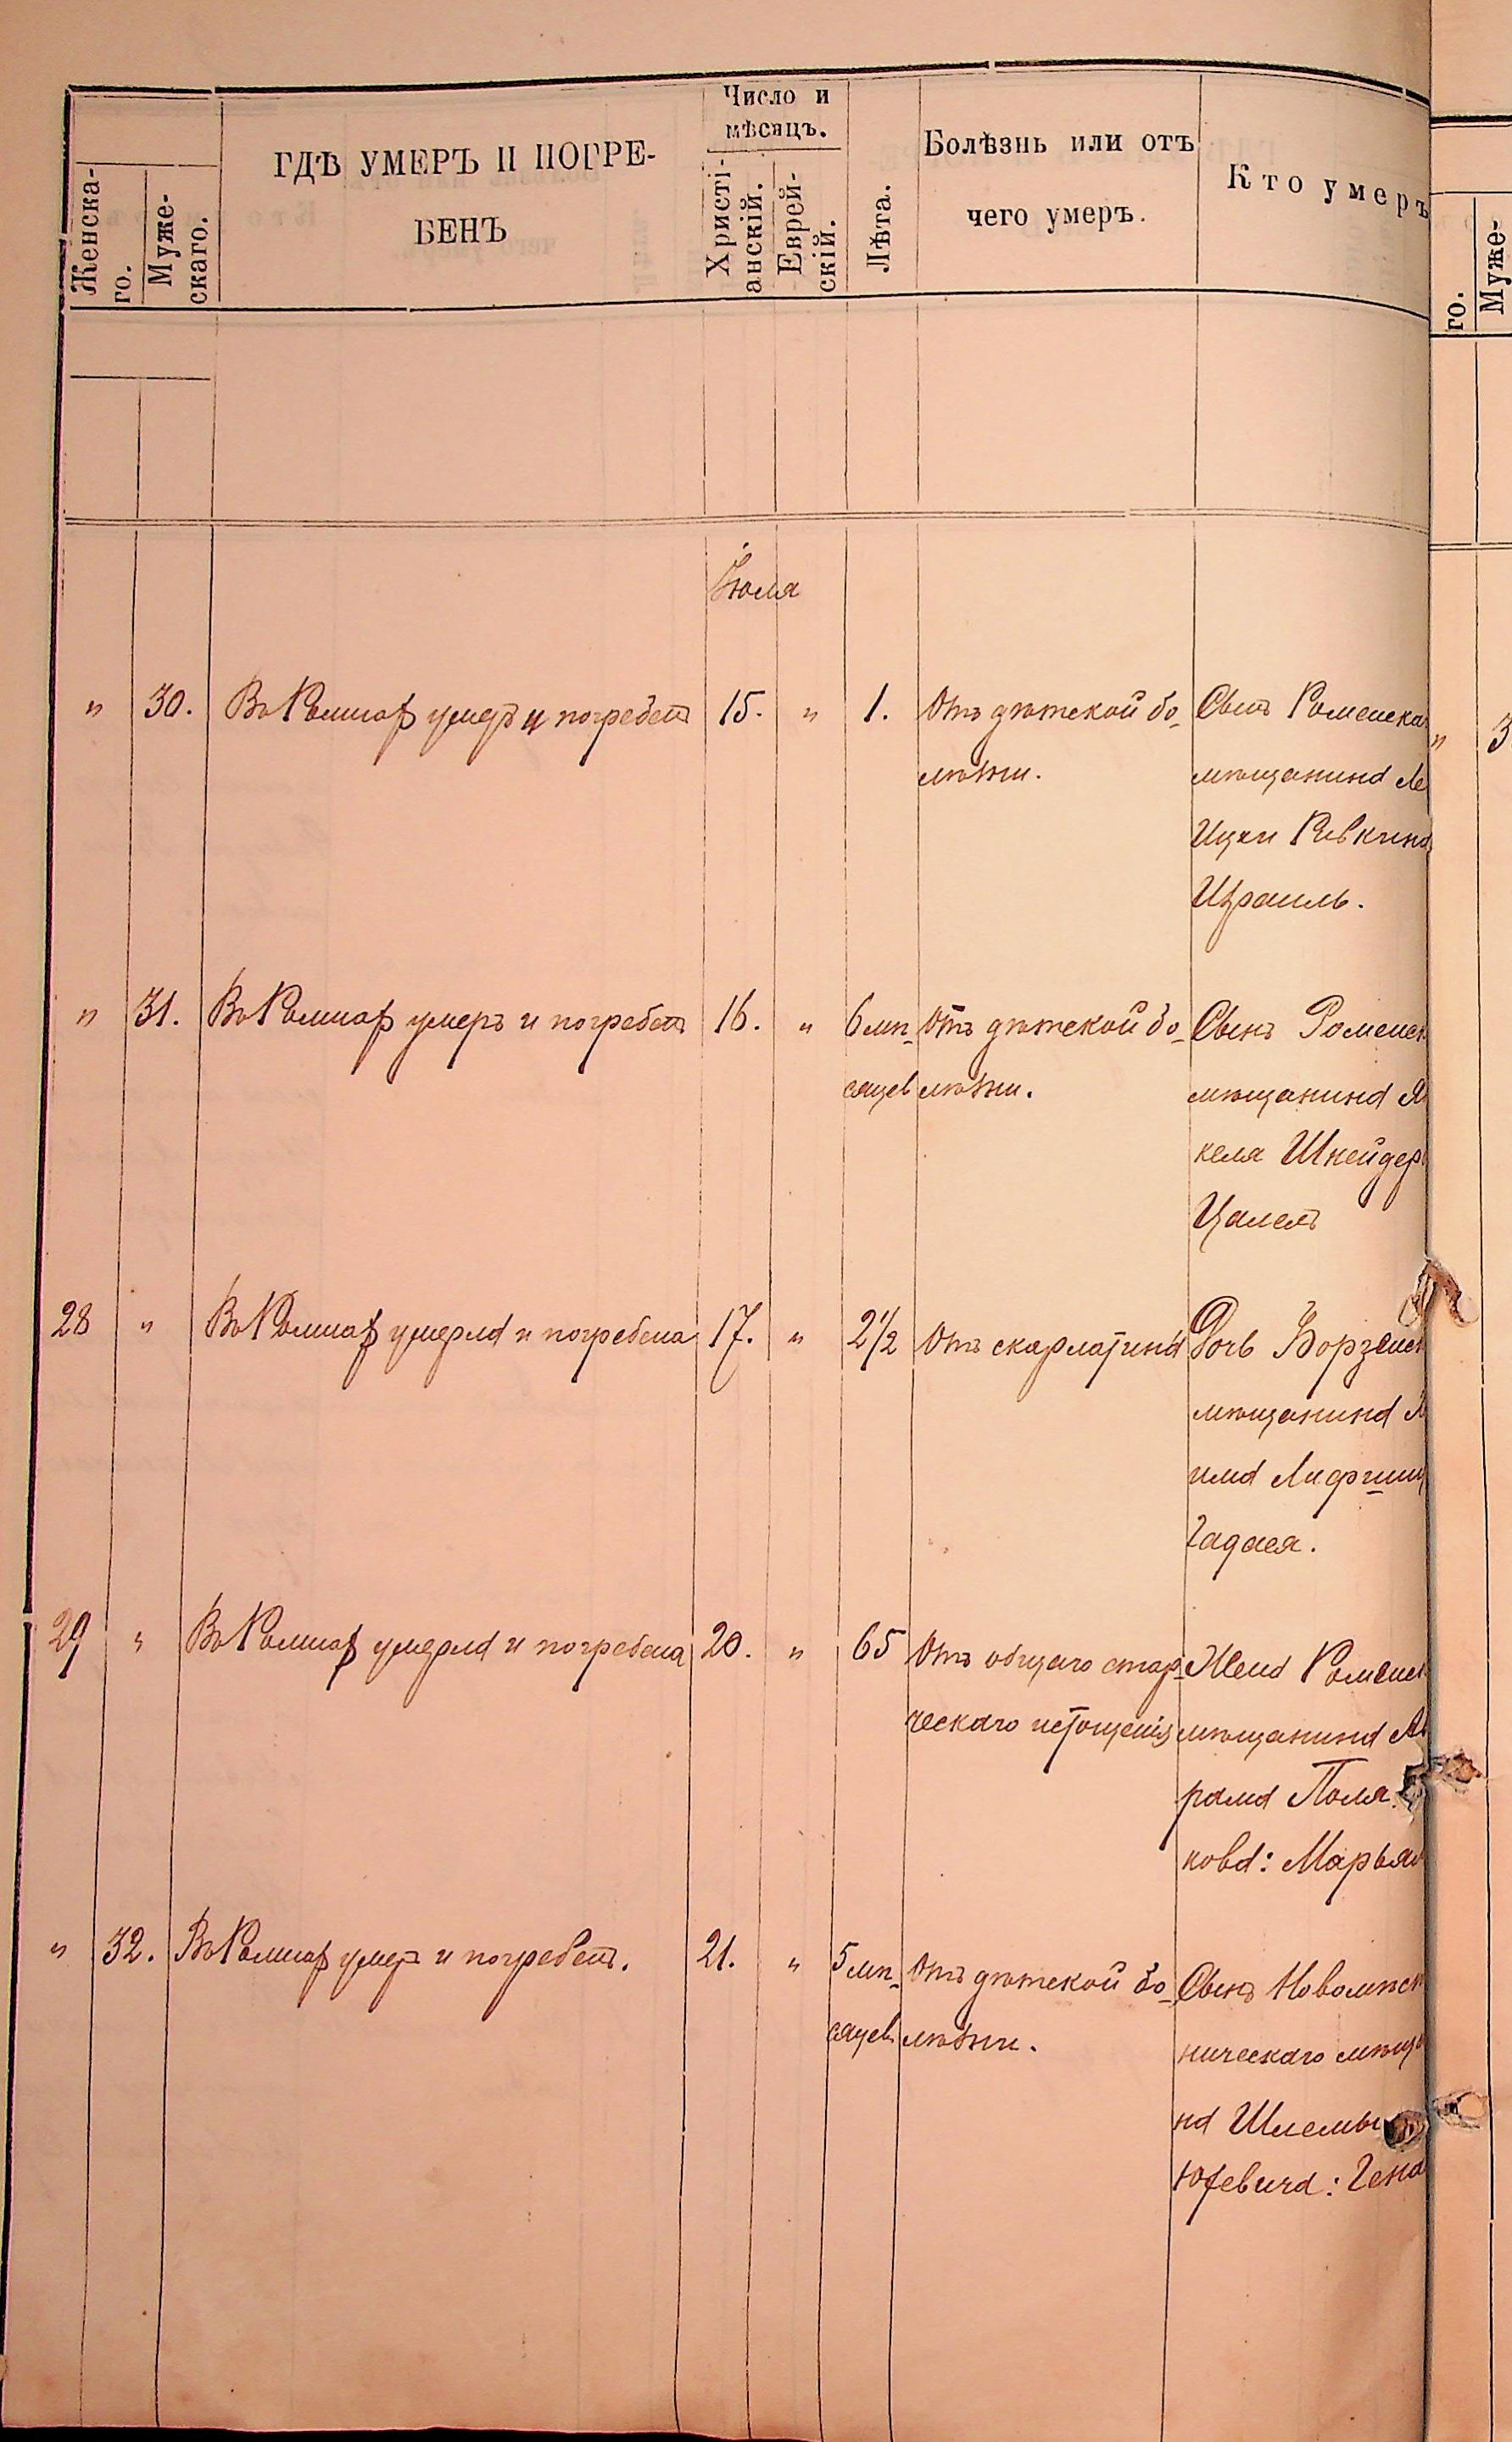 Женска-
го.
Муже-
скаго.
ГДѢ УМЕРЪ И ПОГРЕ-
БЕНЪ
Число и
мѣсяцъ.
Христі-
анскій.
Еврей-
скій.
Лѣта.
Болѣзнь или отъ
чего умеръ.
Кто умеръ
го.
Муже-
Іюля
" 30. Въ Ромнах умеръ и погребенъ 15. " 1. Отъ дѣтской бо- Сынъ Роменска
лѣзни. мѣщанина Ле
Ицки Ривкина
Израиль.
" 3
" 31. Въ Ромнах умеръ и погребенъ 16. " 6 мѣ- Отъ дѣтской бо- Сынъ Роменск
сяцев лѣзни. мѣщанина Ян
келя Шнейдер
Цалел
28 " Въ Ромнах умерла и погребена 17. " 2 1/2 Отъ скарлатины Дочь Борзенск
мѣщанина
има Лифшиц
Гадася.
29 " Въ Ромнах умерла и погребена 20. " 65 Отъ общаго стар- Жена Роменск
ческаго истощенія мѣщанина Ав
рама Поля
кова: Марьяс
" 32. Въ Ромнах умер и погребенъ. 21. " 5 мѣ- Отъ дѣтской бо- Сынъ Новомѣст
сяцев лѣзни. ническаго мѣща
на Шлемы
: Гена